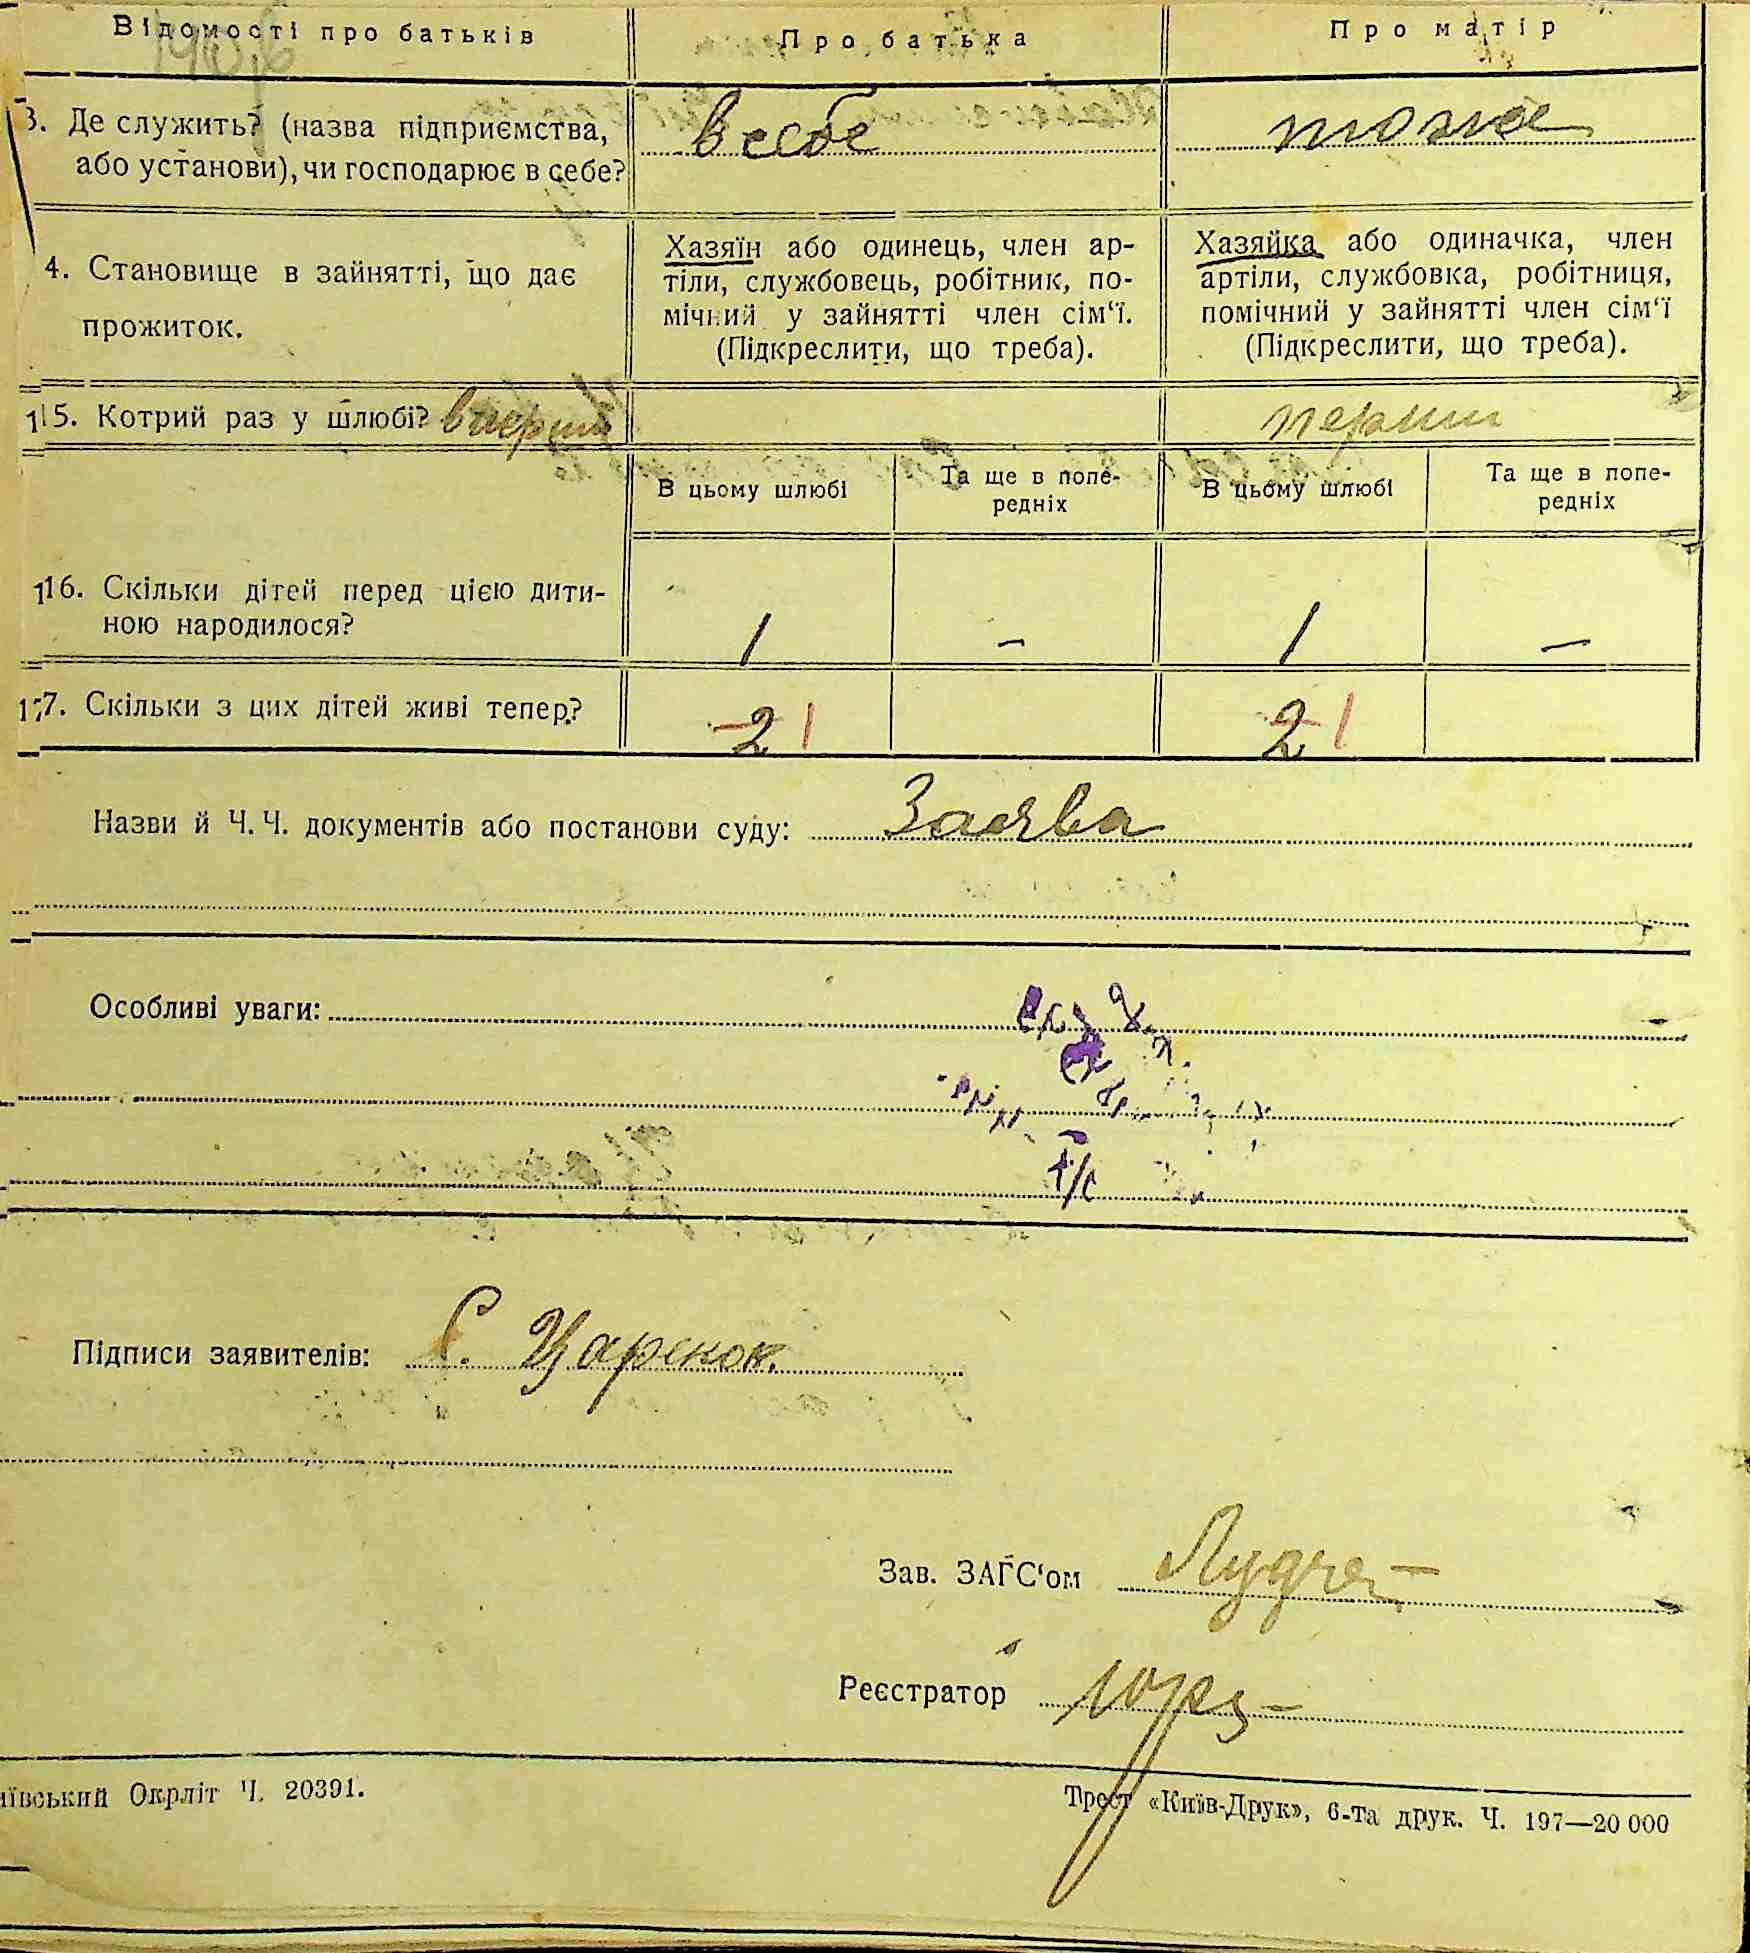 Відомості про батьків
Про батька
Про матір
3. Де служить? (назва підприємства,
або установи), чи господарює в себе?
в себе
тоже
4. Становище в зайнятті, що дає
прожиток.
Хазяїн або одинець, член ар-
тіли, службовець, робітник, по-
мічний у зайнятті член сім‘ї.
(Підкреслити, що треба).
Хазяйка або одиначка, член
артіли, службовка, робітниця,
помічний у зайнятті член сім‘ї
(Підкреслити, що треба).
15. Котрий раз у шлюбі?
В цьому шлюбі
Та ще в попе-
редніх
В цьому шлюбі
Та ще в попе-
редніх
16. Скільки дітей перед цією дити-
ною народилося?
1 – 1 –
17. Скільки з цих дітей живі тепер?
2 1 2 1
Назви й Ч. Ч. документів або постанови суду: Заява
Особливі уваги:
Підписи заявителів: Є. Царенок
Зав. ЗАГС‘ом
Реєстратор
ївський Окрліт Ч. 20391.
Трест «Київ-Друк», 6-та друк. Ч. 197—20 000